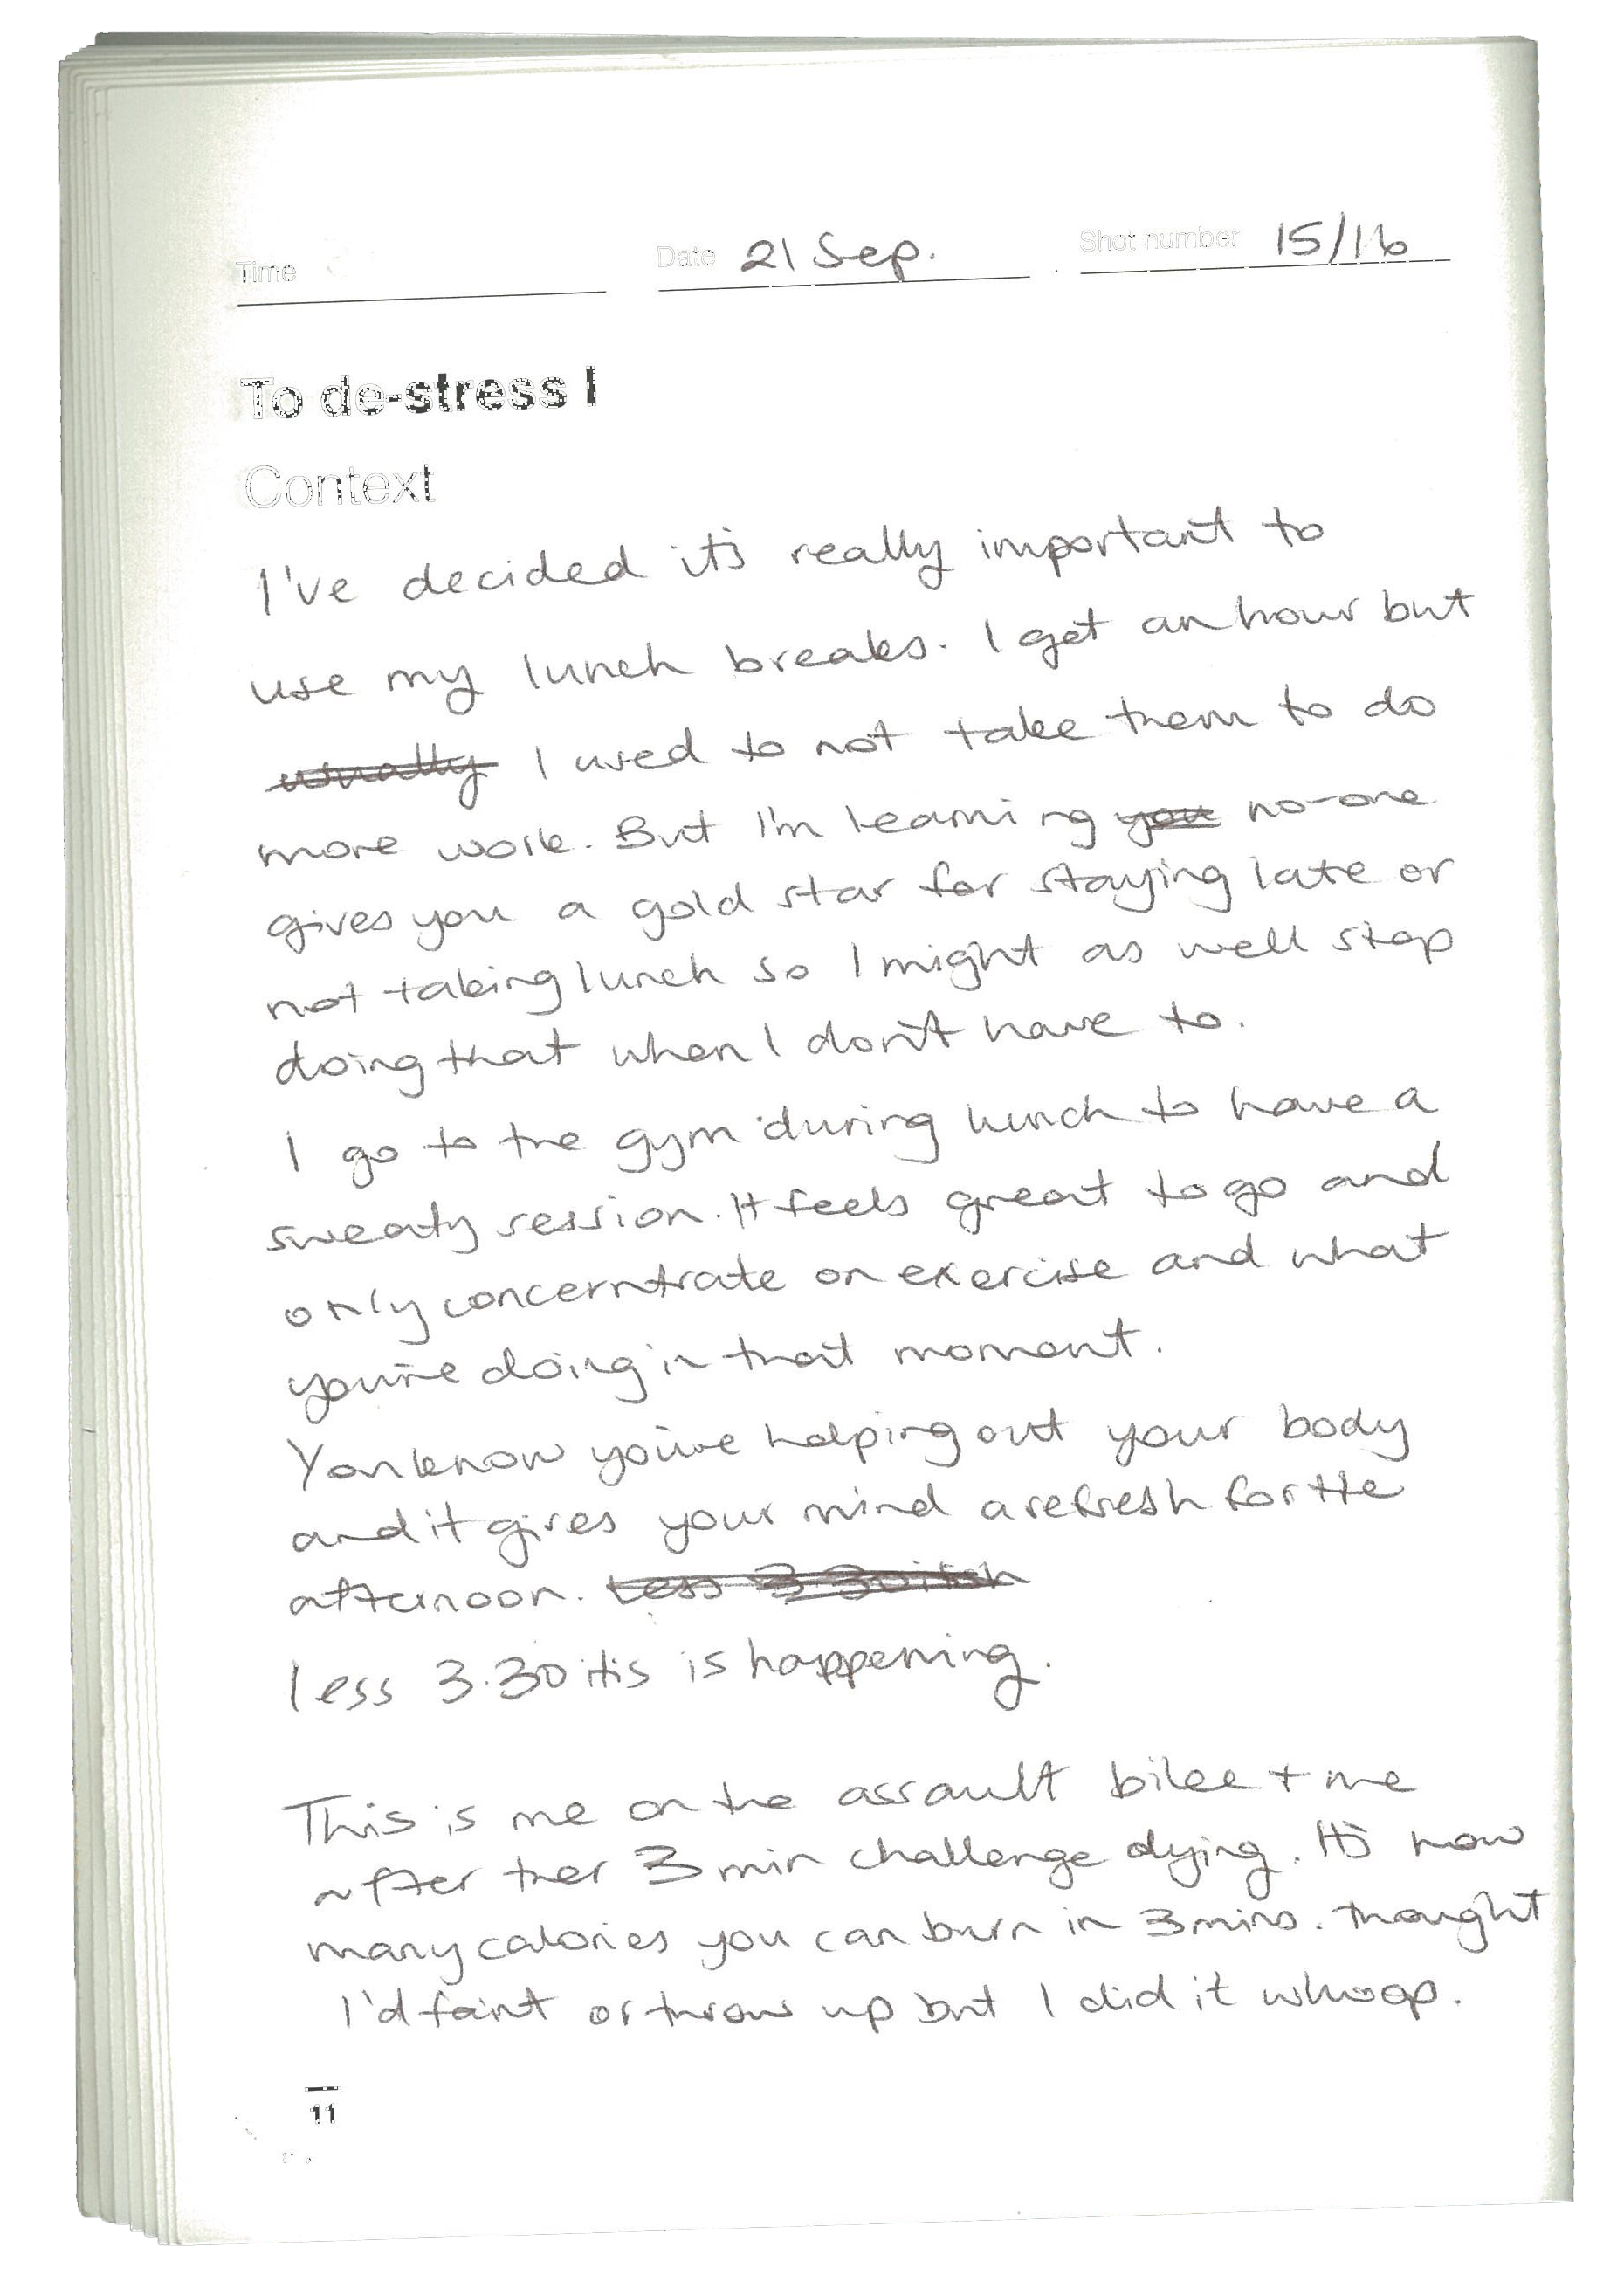 Time Date 21 Sep. Shot number 15/16
To de-stress I
Context
I've decided it's really important to
use my lunch breaks. I get an hour but
usually I used to not take them to do
more work. But I'm learning you no-one
gives you a gold star for staying late or
not taking lunch so I might as well stop
doing that when I don't have to.
I go to the gym during lunch to have a
sweaty session. It feels great to go and
only concerntrate on exercise and what
you're doing in that moment.
You know you're helping out your body
and it gives your mind a refresh for the
afternoon. Less 3.30itish
less 3.30 itis is happening.
This is me on the assault bike + me
after ther 3 min challenge dying. It's how
many calories you can burn in 3 mins. thought
I'd faint or throw up but I did it whoop.
11